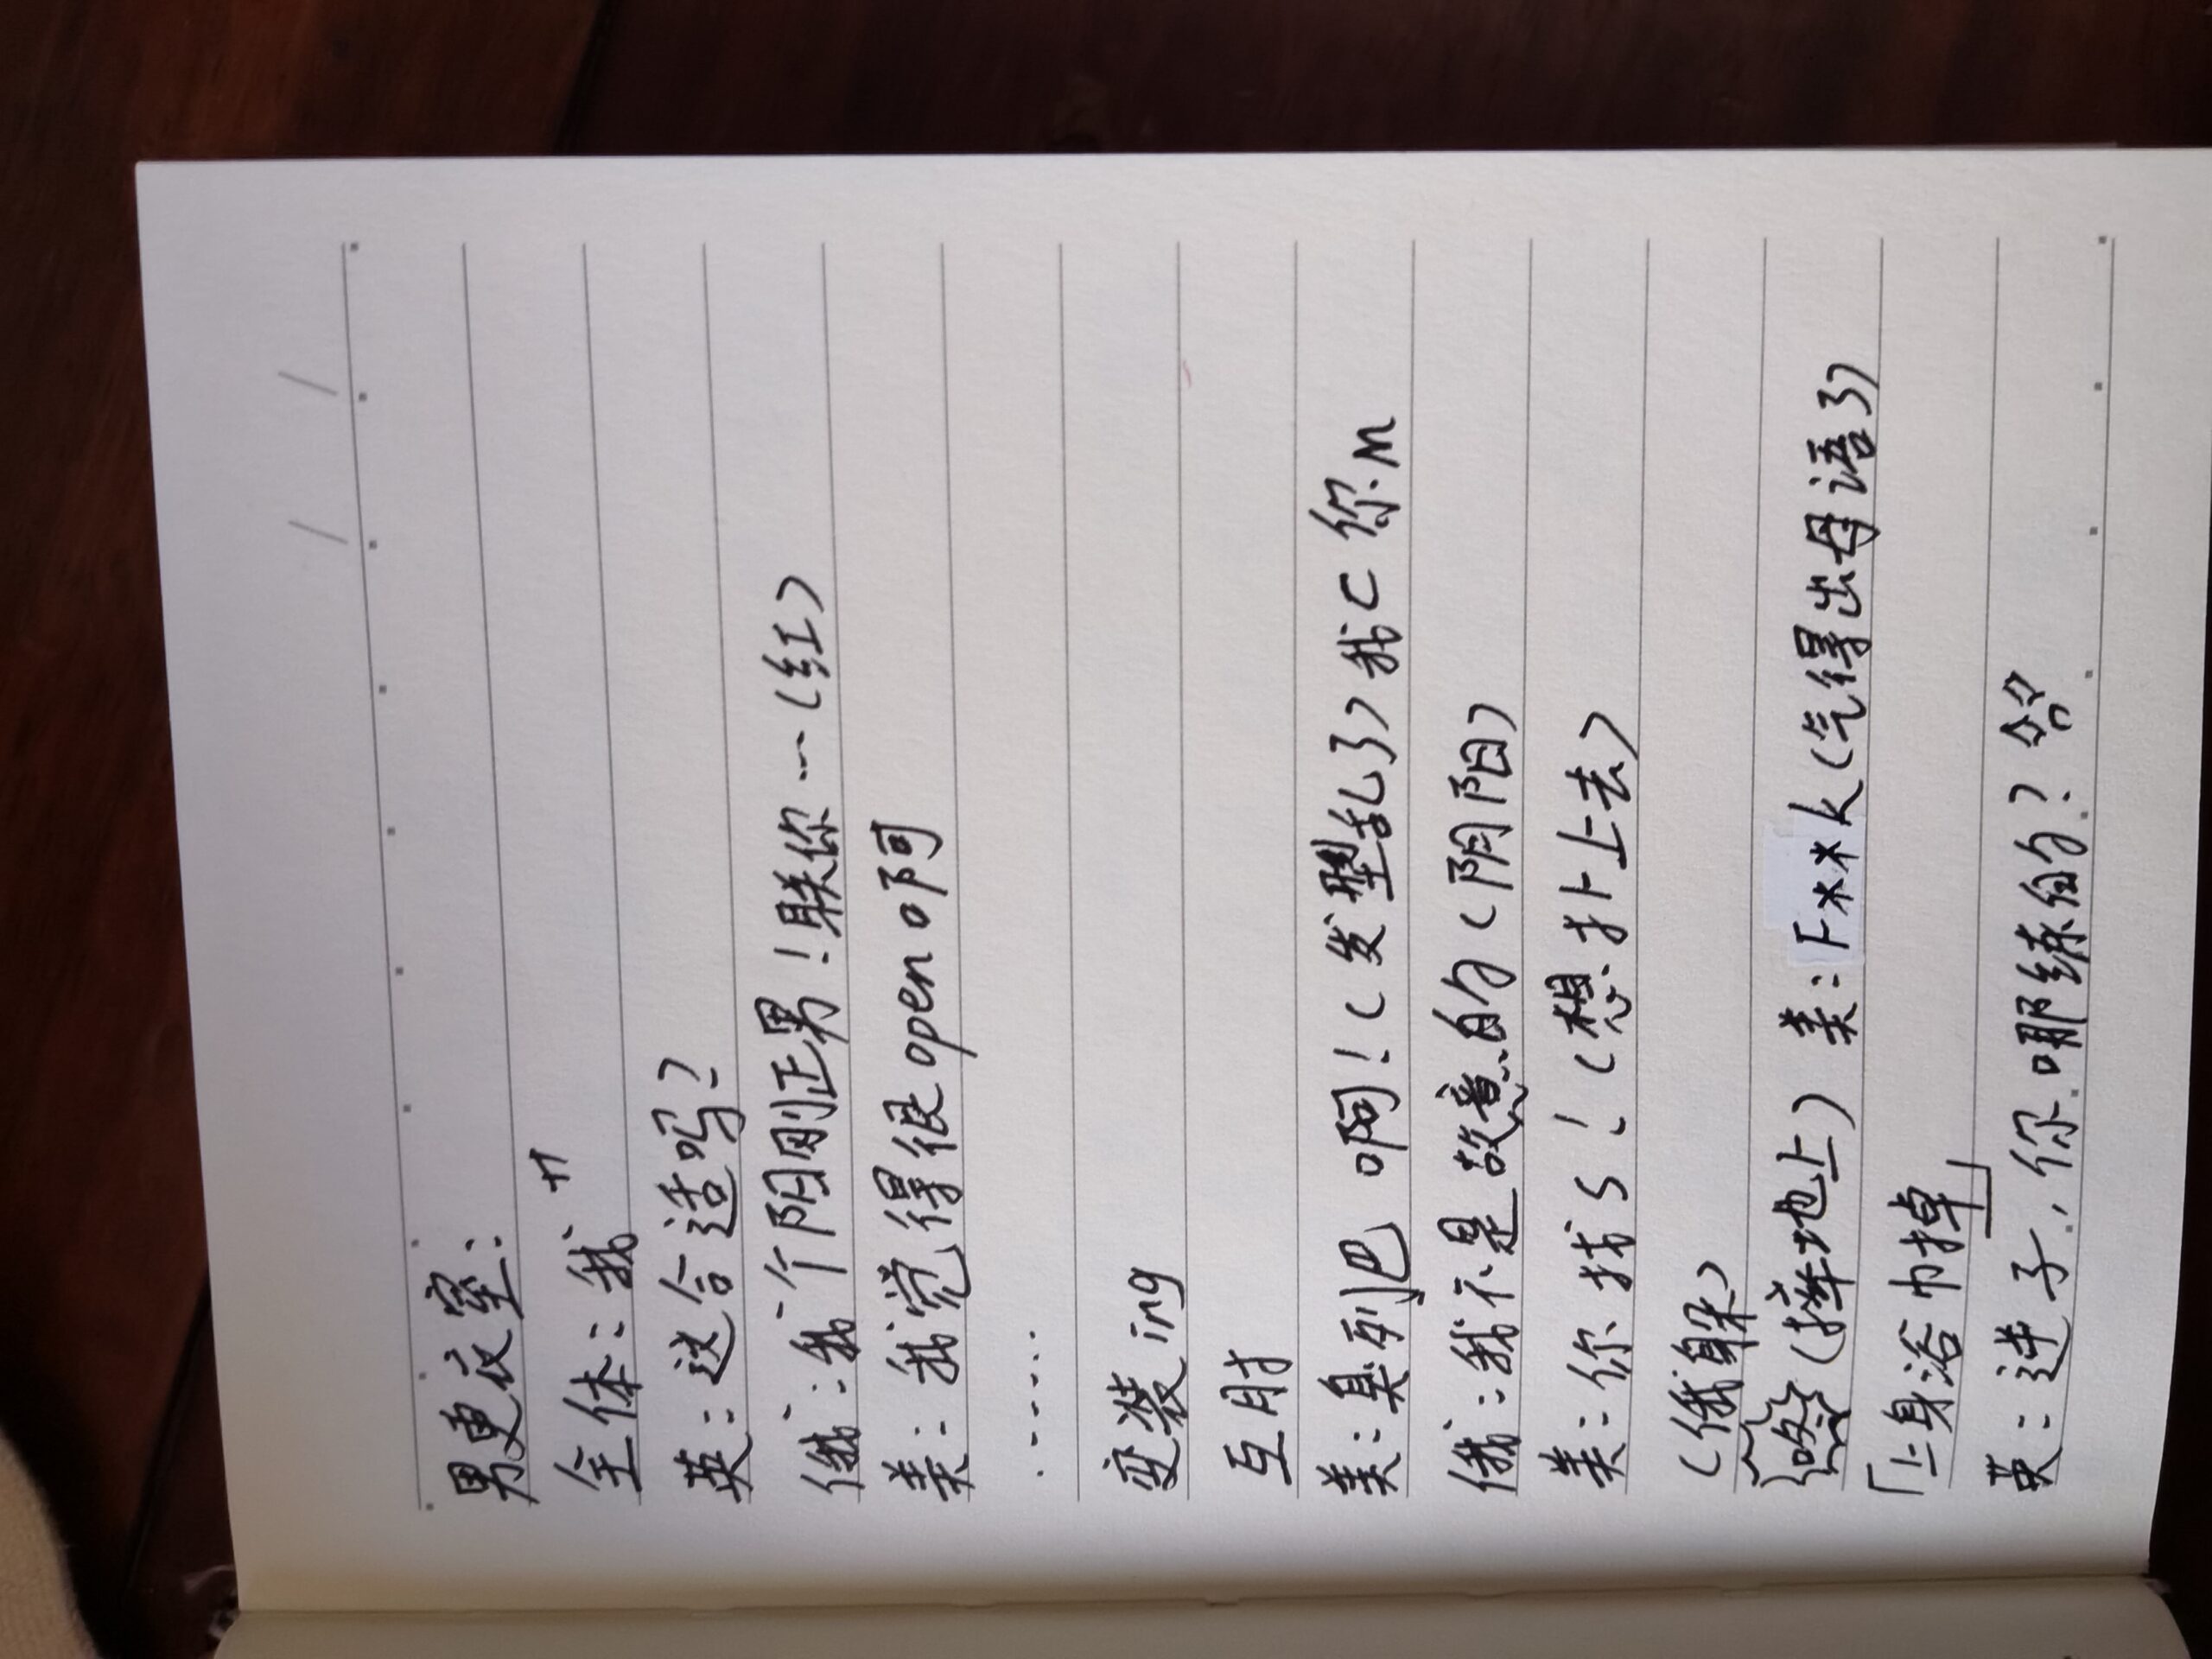 男更衣室：
全体：我艹
英：这合适吗？
俄：我一个阴刚正男！朕你…（红）
美：我觉得很open啊
······
变装ing
互肘
美：臭列巴 啊！（发型乱了）我C你M
俄：我不是故意的（阴阳）
美：你找S！（想扑上去）
（俄躲）
咚（摔地上） 美：F**k（气得出母语了）
「上身浴巾掉」
英：逆子，你哪练的？